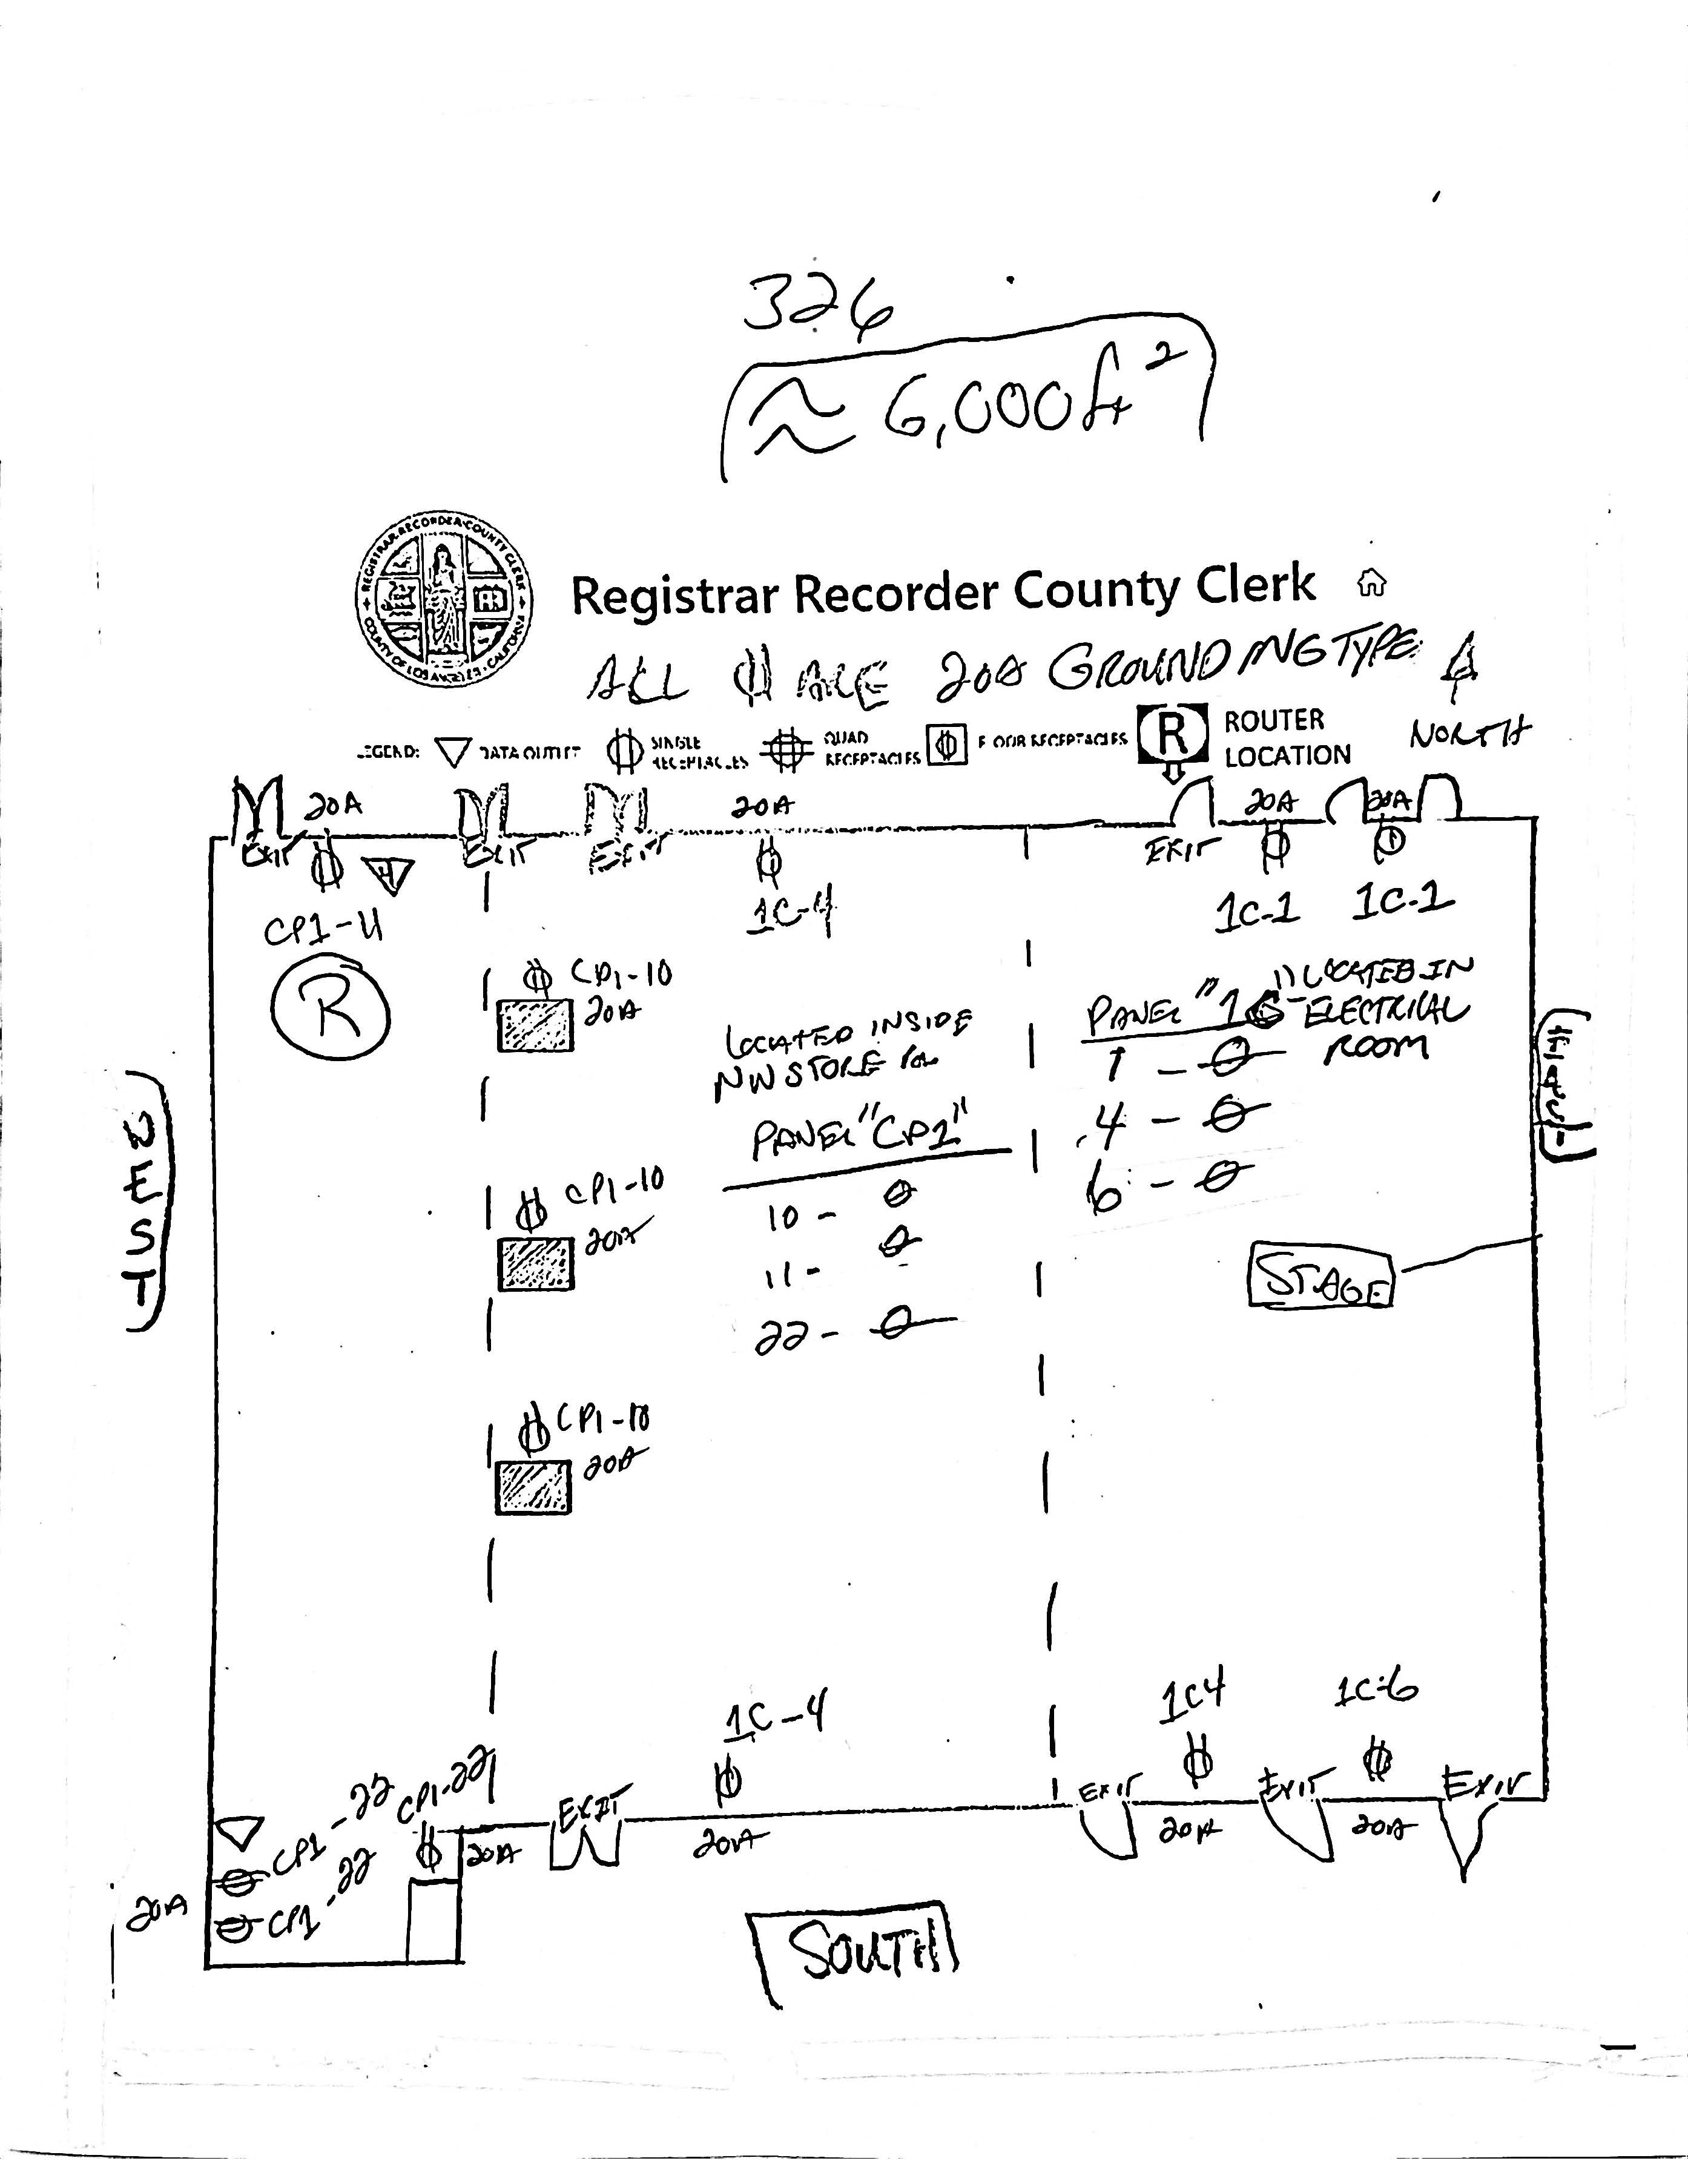 326
≈ 6,000 ft²
REGISTRAR-RECORDER/COUNTY CLERK
COUNTY OF LOS ANGELES - CALIFORNIA
Registrar Recorder County Clerk
ALL ARE 20A GROUNDING TYPE
NORTH
LEGEND: DATA OUTLET SINGLE RECEPTACLES QUAD RECEPTACLES FLOOR RECEPTACLES R ROUTER LOCATION
20A 20A 20A 20A
EXIT EXIT EXIT EXIT
CP1-11 1C-4 1C-1 1C-1
R
CP1-10
20A
LOCATED INSIDE
NW STORE RM
PANEL "CP1"
10 -
11 -
22 -
PANEL "1C" LOCATED IN
ELECTRICAL
ROOM
1 -
4 -
6 -
WEST
CP1-10
20A
STAGE
CP1-10
20A
1C-4 1C4 1C-6
CP1-22 CP1-22
EXIT EXIT EXIT EXIT
20A 20A 20A 20A
CP1-22
20A
SOUTH